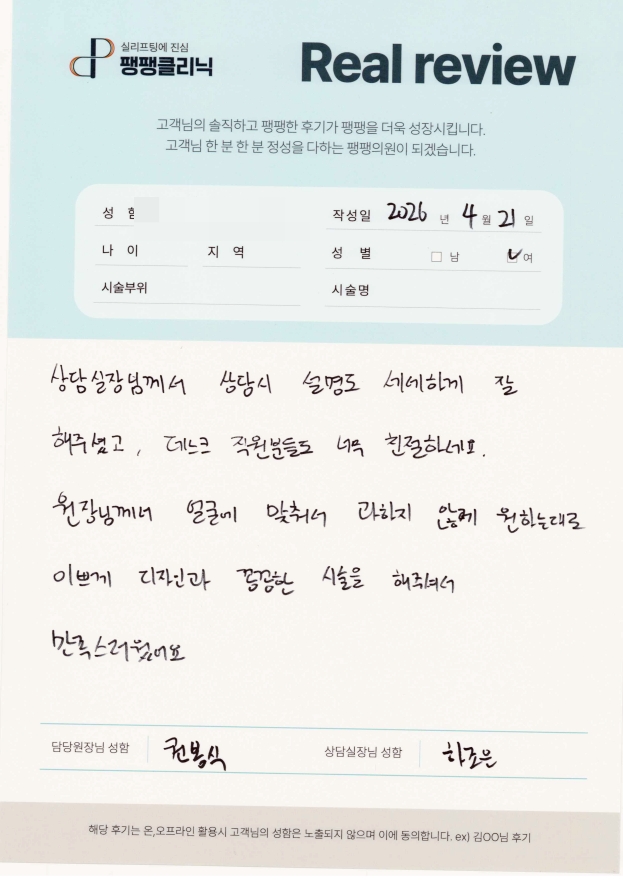 실리프팅에 진심
팽팽클리닉
Real review
고객님의 솔직하고 팽팽한 후기가 팽팽을 더욱 성장시킵니다.
고객님 한 분 한 분 정성을 다하는 팽팽의원이 되겠습니다.
성 함
작성일 2026 년 4 월 21 일
나 이 지 역
성 별 남 여
시술부위
시술명
상담실장님께서 상담시 설명도 세세하게 잘
해주셨고, 데스크 직원분들도 너무 친절하세요.
원장님께서 얼굴에 맞춰서 과하지 않게 원하는대로
이쁘게 디자인과 꼼꼼한 시술을 해주셔서
만족스러웠어요
담당원장님 성함 권봉식
상담실장님 성함 하조은
해당 후기는 온,오프라인 활용시 고객님의 성함은 노출되지 않으며 이에 동의합니다. ex) 김OO님 후기